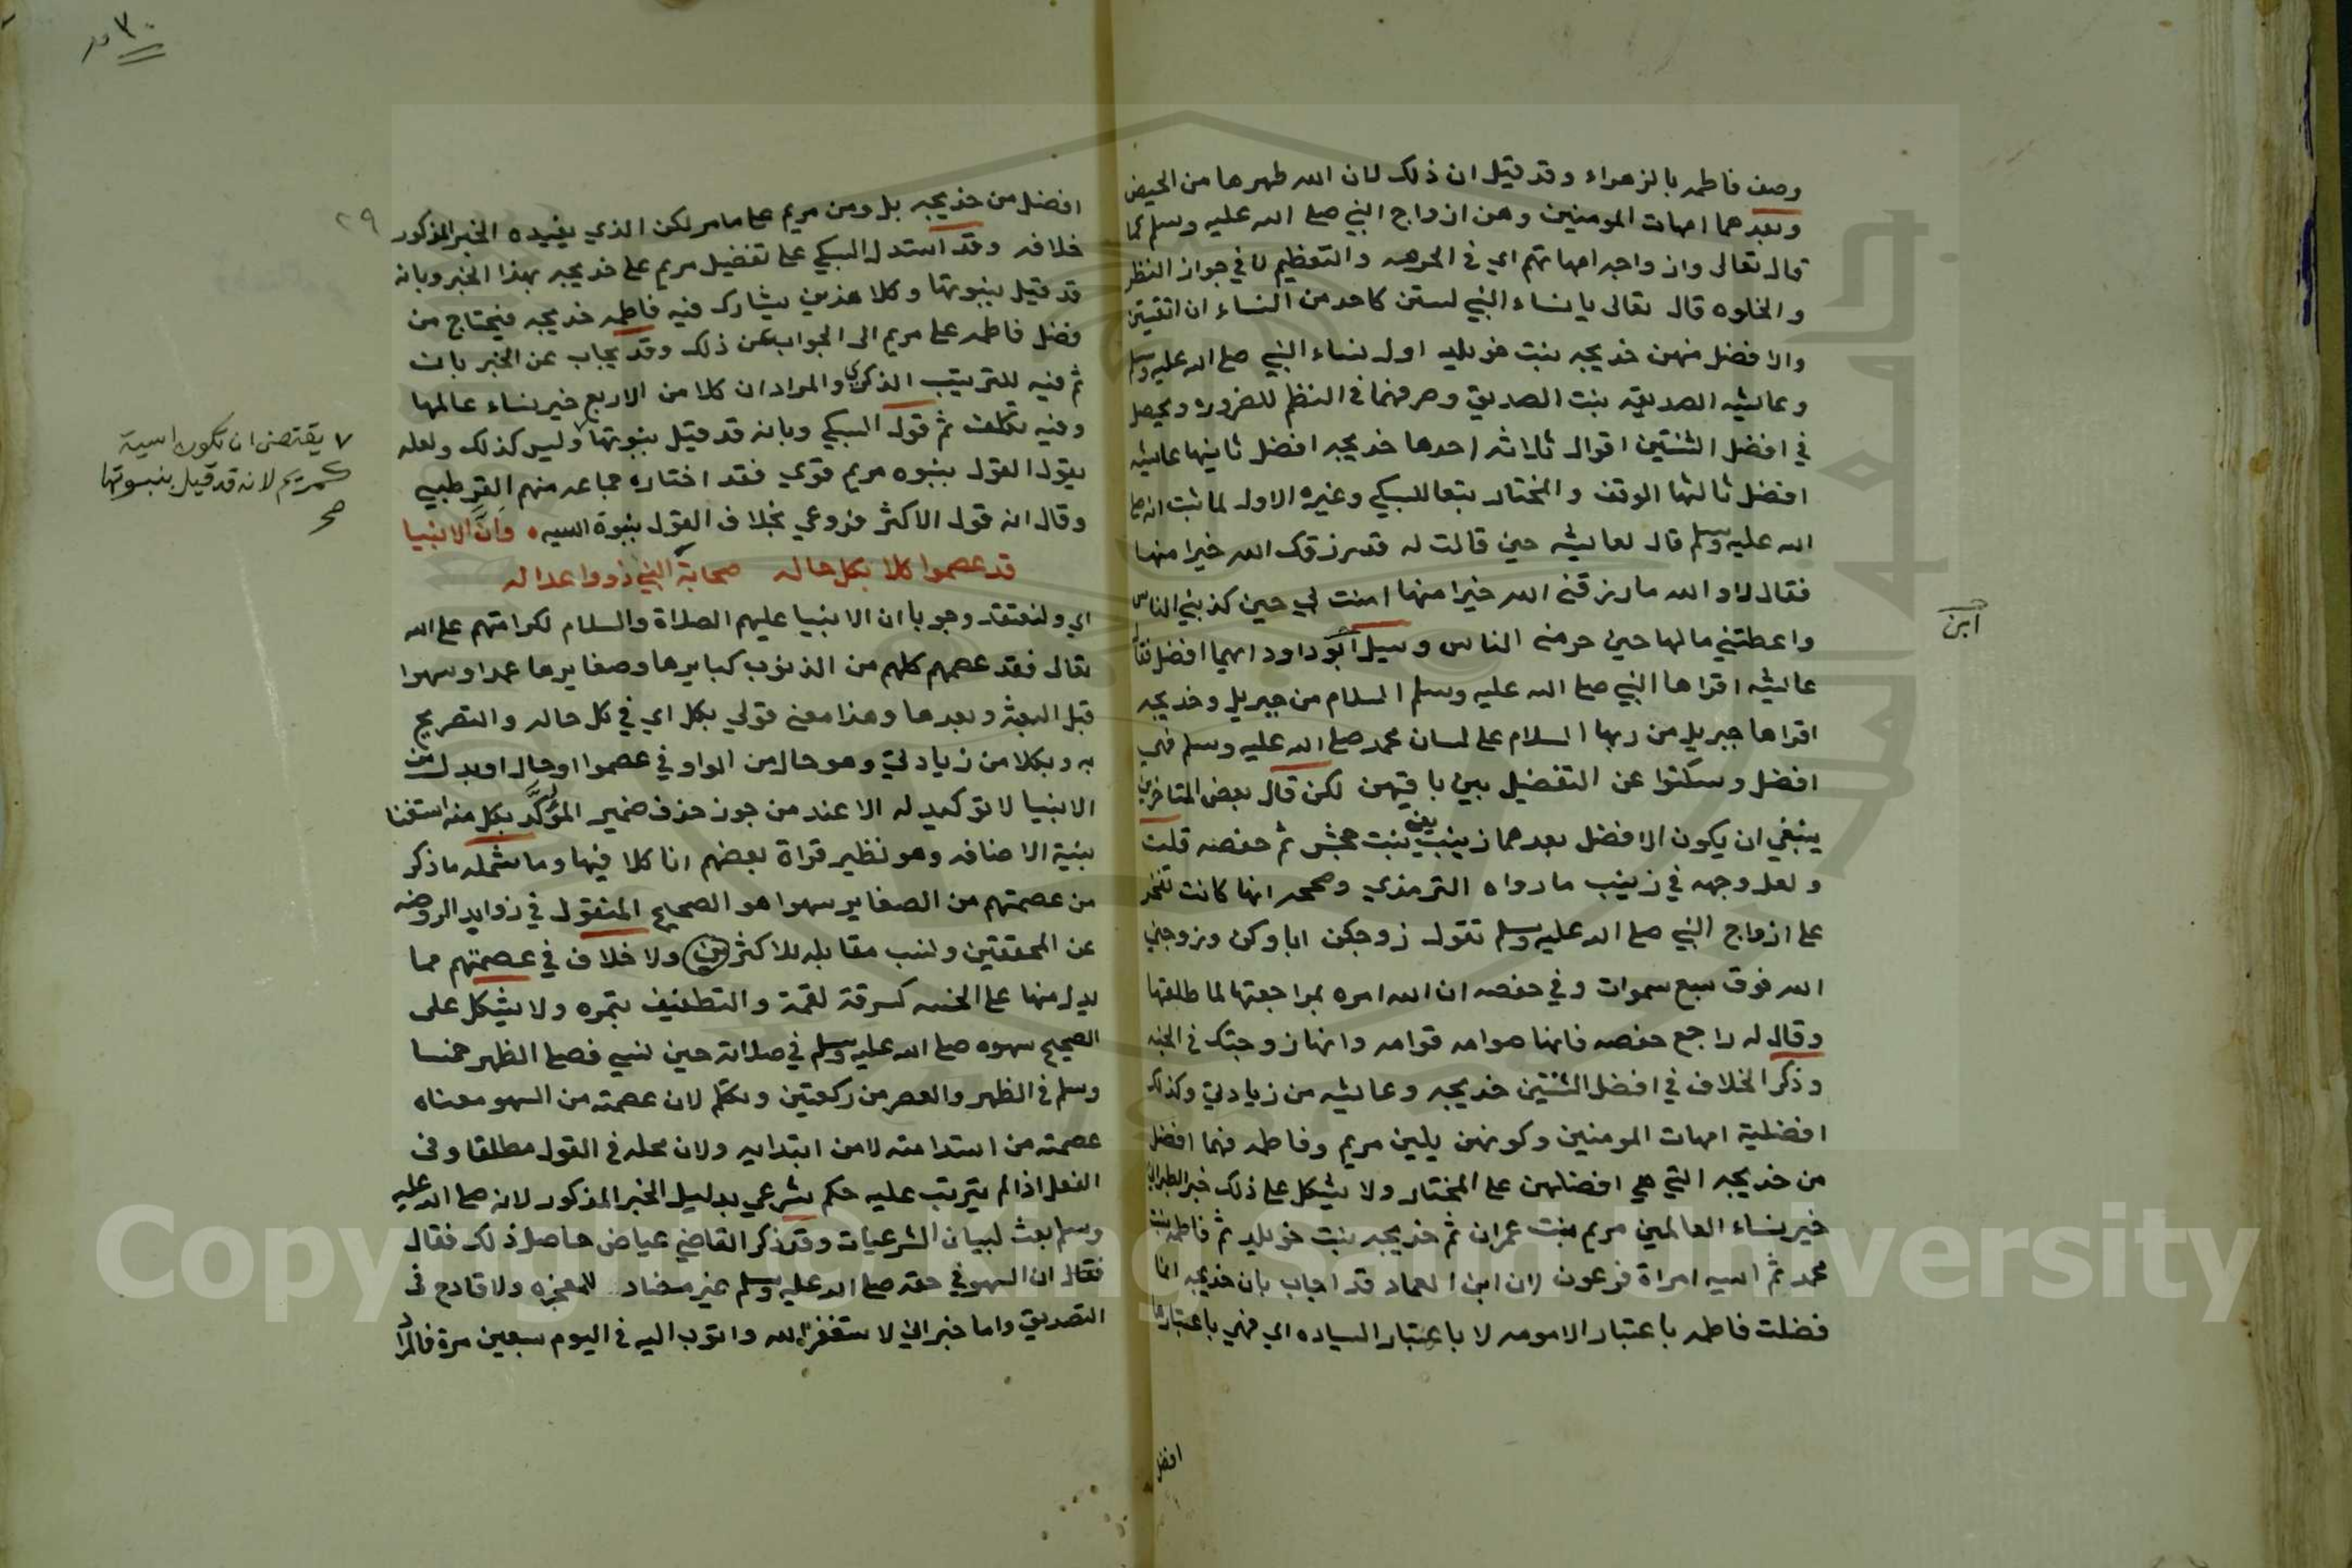 وصف فاطمه بالزهراء وقد قيل ان ذلك لان الله طهرها من الحيض
وبعدهما امهات المومنين وهن ازواج النبي صلى الله عليه وسلم كما
قال تعالى وازواجه امهاتهم اي في الحرمه والتعظيم لا في جواز النظر
والخلوه قال تعالى يا نساء النبي لستن كاحد من النساء ان اتقيتن
والافضل منهن خديجه بنت خويلد اول نساء النبي صلى الله عليه وسلم
وعايشه الصديقه بنت الصديق وصرفهما في النظم للضروره ويحصل
في افضل الثنتين اقوال ثلاثه احدها خديجه افضل ثانيها عايشه
افضل ثالثها الوقف والمختار تبعا للسبكي وغيره الاول لما ثبت انه صلى
الله عليه وسلم قال لعايشه حين قالت له قد رزقك الله خيرا منها
فقال لا والله ما رزقني الله خيرا منها امنت بي حين كذبني الناس
واعطتني مالها حين حرمني الناس وسيل ابو داود ايهما افضل فقال
ابن
عايشه اقراها النبي صلى الله عليه وسلم السلام من جبريل وخديجه
اقراها جبريل من ربها السلام على لسان محمد صلى الله عليه وسلم فهي
افضل وسكتوا عن التفضيل بين باقيهن لكن قال بعض المتاخرين
ينبغي ان يكون الافضل بعدهما زينب بنت جحش ثم حفصه قلت
ولعل وجهه في زينب ما رواه الترمذي وصححه انها كانت تفخر
على ازواج النبي صلى الله عليه وسلم تقول زوجكن اباوكن وزوجني
الله فوق سبع سموات وفي حفصه ان الله امره بمراجعتها لما طلقها
وقال له راجع حفصه فانها صوامه قوامه وانها زوجتك في الجنه
وذكر الخلاف في افضل الثنتين خديجه وعايشه من زيادتي وكذلك
افضلية امهات المومنين وكونهن يلين مريم وفاطمه فهما افضل
من خديجه التي هي افضلهن على المختار ولا يشكل على ذلك خبر الطبراني
خير نساء العالمين مريم بنت عمران ثم خديجه بنت خويلد ثم فاطمه بنت
محمد ثم اسيه امراة فرعون لان ابن العماد قد اجاب بان خديجه انما
فضلت فاطمه باعتبار الامومه لا باعتبار السياده اي فهي باعتبارها
افضل
٣٠
٢٩
افضل من خديجه بل ومن مريم على ما مر لكن الذي يفيده الخبر المذكور
خلافه وقد استدل السبكي على تفضيل مريم على خديجه بهذا الخبر وبانه
قد قيل بنبوتها وكلا هذين يشارك فيه فاطمه خديجه فيحتاج من
فضل فاطمه على مريم الى الجواب عن ذلك وقد يجاب عن الخبر بان
ثم فيه للترتيب الذكري والمراد ان كلا من الاربع خير نساء عالمها
وفيه تكلف ثم قول السبكي وبانه قد قيل بنبوتها وليس كذلك ولعله
٧ يقتضي ان تكون اسية
كمريم لانه قد قيل بنبوتها
صح
يقول القول بنبوه مريم قوي فقد اختاره جماعه منهم القرطبي
وقال انه قول الاكثر فروعي بخلاف القول بنبوة اسيه ٥ وان الانبيا
قد عصموا كلا بكل حاله صحابة النبي ذووا عداله
اي ولنعتقد وجوبا ان الانبيا عليهم الصلاة والسلام لكرامتهم على الله
تعالى فقد عصمهم كلهم من الذنوب كبايرها وصغايرها عمدا وسهوا
قبل البعثه وبعدها وهذا معنى قولي بكل اي في كل حاله والتصريح
به وبكلا من زيادتي وهو حال من الواو في عصموا او حال او بدل من
الانبيا لا توكيد له الا عند من جوز حذف ضمير المؤكد بكل منه استغنا
بنية الاضافه وهو نظير قراة بعضهم انا كلا فيها وما شمله ما ذكر
من عصمتهم من الصغاير سهوا هو الصحيح المنقول في زوايد الروضه
عن المحققين ونسب مقابله للاكثرين ولا خلاف في عصمتهم مما
يدل منها على الخسه كسرقة لقمة والتطفيف بتمره ولا يشكل على
الصحيح سهوه صلى الله عليه وسلم في صلاته حين نسي فصلى الظهر خمسا
وسلم في الظهر والعصر من ركعتين وتكلم لان عصمته من السهو معناه
عصمته من استدامته لا من ابتدايه ولان محله في القول مطلقا وفى
الفعل اذا لم يترتب عليه حكم شرعي بدليل الخبر المذكور لانه صلى الله عليه
وسلم بعث لبيان الشرعيات وقد ذكر القاضي عياض حاصل ذلك فقال
فقال ان السهو في حقه صلى الله عليه وسلم غير مضاد للمعجزه ولا قادح فى
التصديق واما خبر اني لاستغفر الله واتوب اليه في اليوم سبعين مرة فالمراد